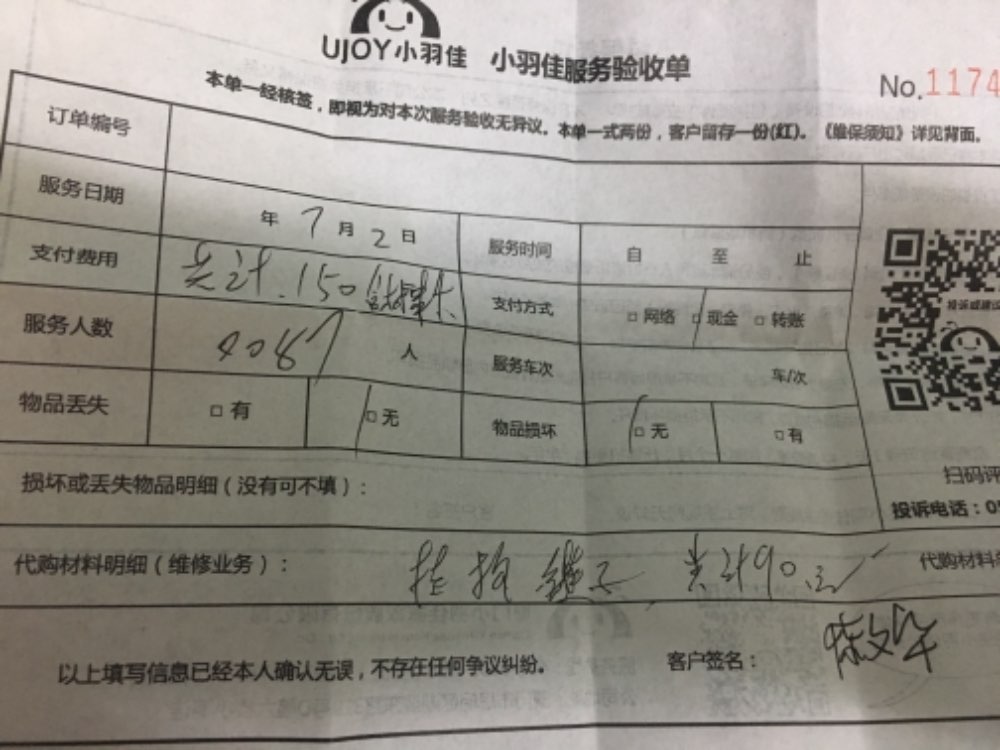 UJOY小羽佳 小羽佳服务验收单
No.1174
本单一经核签，即视为对本次服务验收无异议。本单一式两份，客户留存一份(红)。《维保须知》详见背面。
订单编号
服务日期 年 7 月 2 日 服务时间 自 至 止
支付费用 共计.150 支付方式 □ 网络 □ 现金 □ 转账
服务人数 4087 人 服务车次 车/次
物品丢失 □ 有 □ 无 物品损坏 □ 无 □ 有
扫码评
损坏或丢失物品明细（没有可不填）：
投诉电话：0
代购材料明细（维修业务）： 共计90元
代购材料
以上填写信息已经本人确认无误，不存在任何争议纠纷。 客户签名：